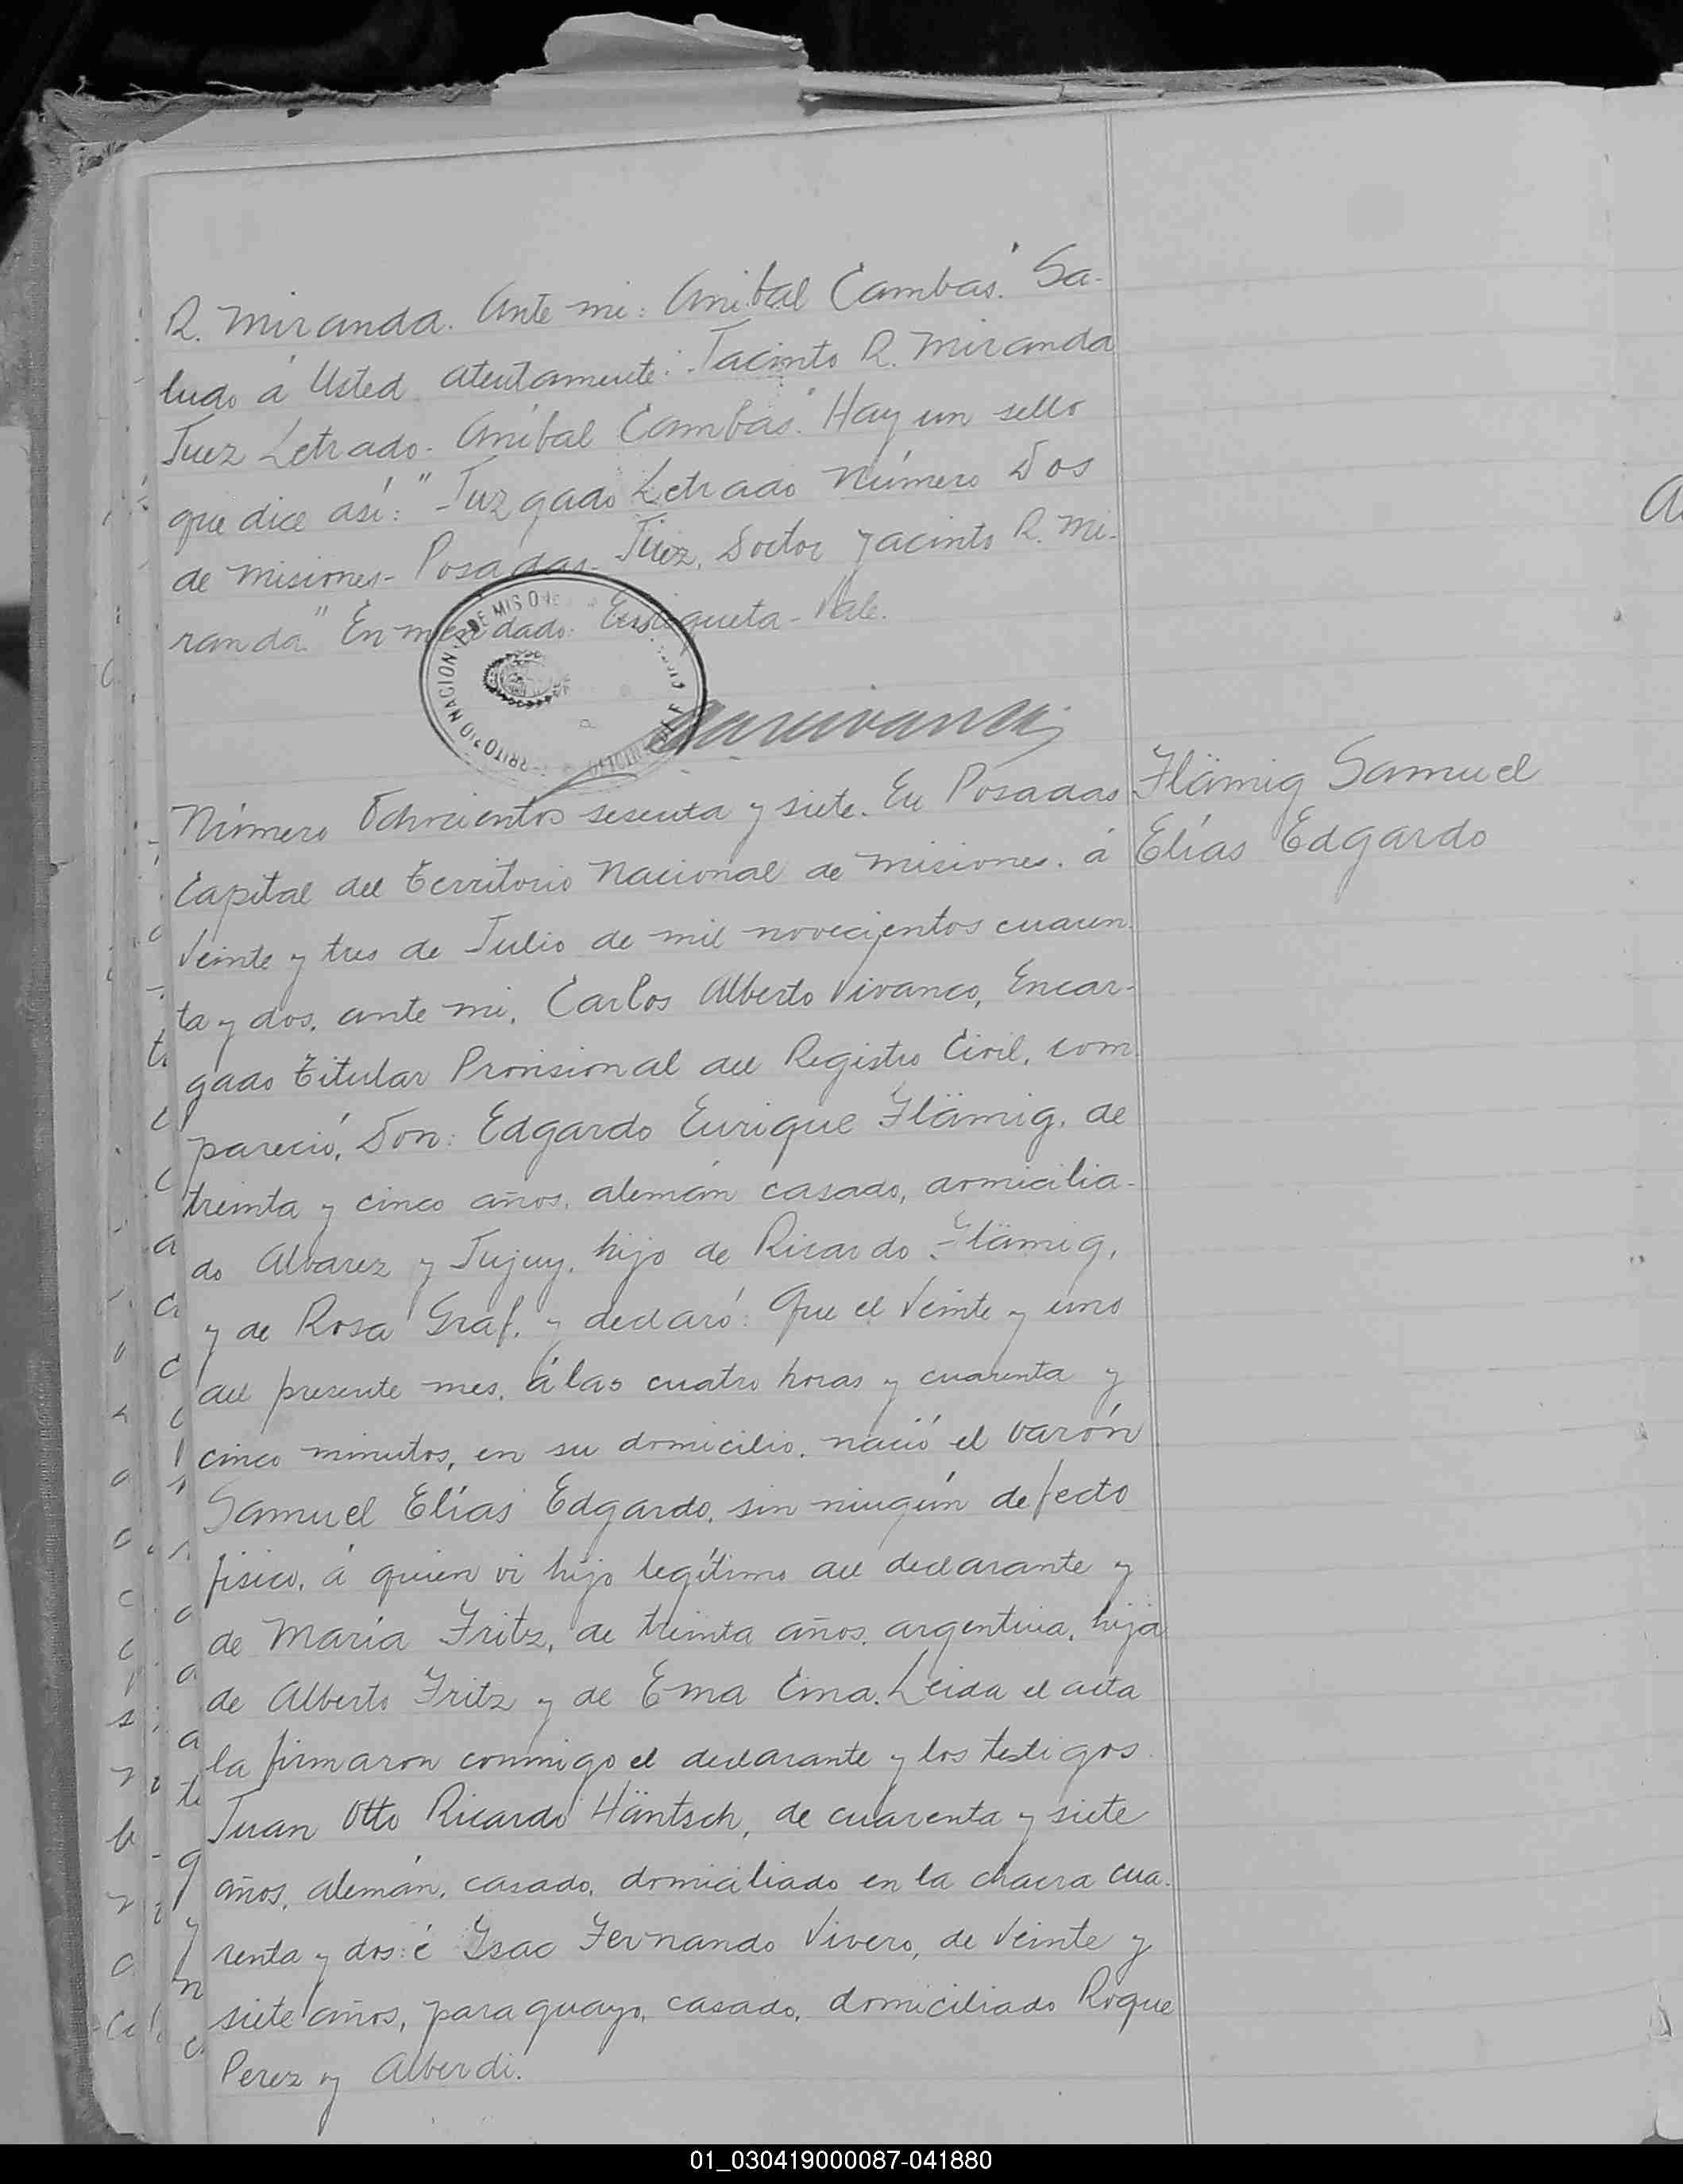 R. Miranda. Ante mi: Anibal Cambas." Sa-
ludo á Usted atentamente: Jacinto R. Miranda
Juez Letrado. Anibal Cambas." Hay un sello
que dice así: "Juzgado Letrado Número Dos
de Misiones- Posadas- Juez, Doctor Jacinto R. Mi-
randa." Enmendado: Enriqueta- Vale.
TERRITORIO NACIONAL DE MISIONES
Número Ochocientos sesenta y siete. En Posadas
Flämig Samuel
Capital del Territorio Nacional de Misiones. á
Elías Edgardo
Veinte y tres de Julio de mil novecientos cuaren-
ta y dos, ante mi, Carlos Alberto Vivanco, Encar-
gado Titular Provisional del Registro Civil, com-
pareció, Don: Edgardo Enrique Flämig, de
treinta y cinco años, alemán casado, domicilia-
do Alvarez y Jujuy, hijo de Ricardo Flämig,
y de Rosa Graf, y declaró: Que el Veinte y uno
del presente mes, á las cuatro horas y cuarenta y
cinco minutos, en su domicilio, nació el varón
Samuel Elías Edgardo, sin ningún defecto
físico, á quien vi hijo legítimo del declarante y
de María Fritz, de treinta años, argentina, hija
de Alberto Fritz y de Ema Ema. Leida el acta
la firmaron conmigo el declarante y los testigos
Juan Otto Ricardo Häntsch, de cuarenta y siete
años, alemán, casado, domiciliado en la chacra cua-
renta y dos: é Isac Fernando Vivero, de Veinte y
siete años, paraguayo, casado, domiciliado Roque
Perez y Alberdi.
01_030419000087-041880